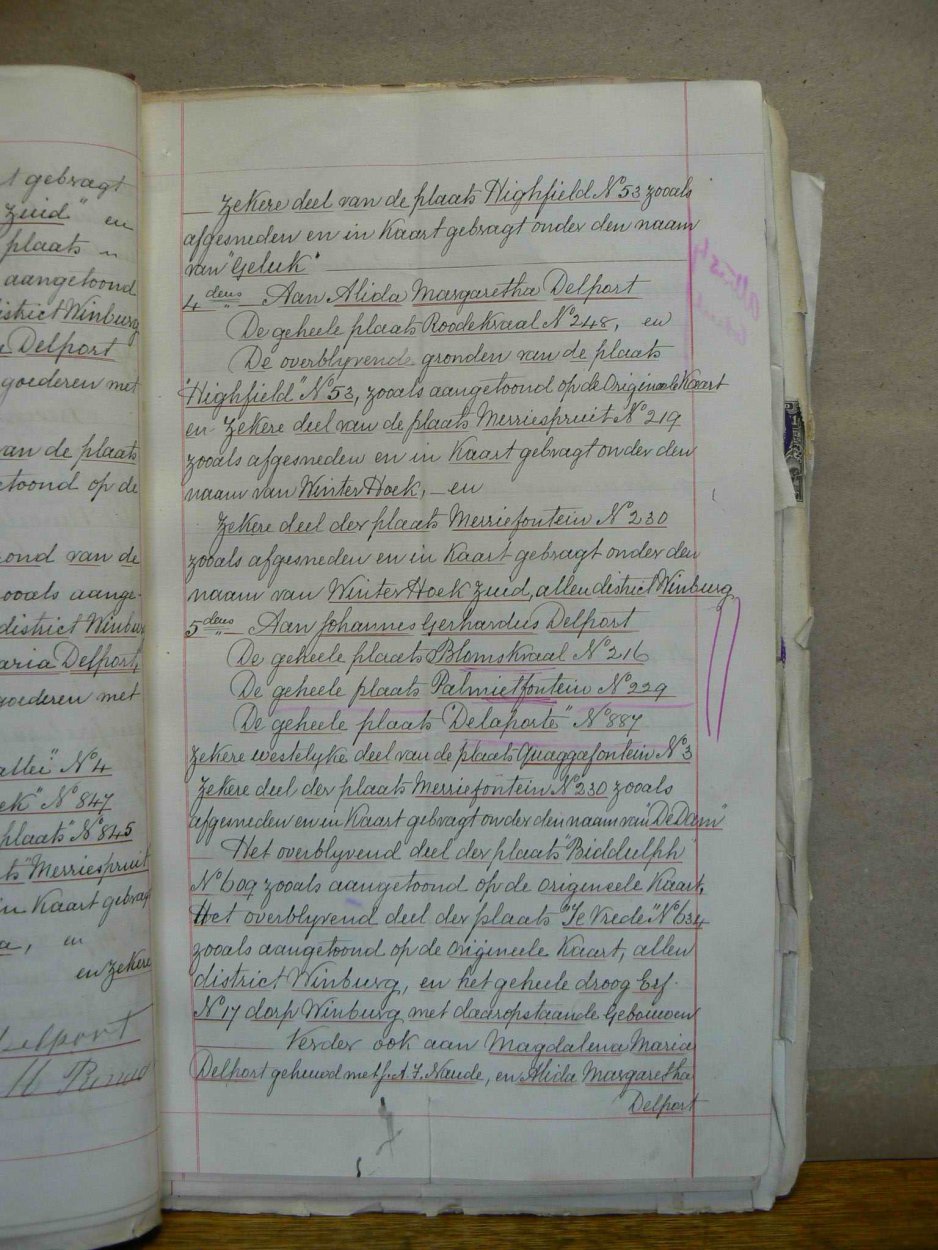 t gebragt
Zuid" en
plaats
aangetoond
district Winburg
a Delport
goederen met
van de plaats
etoond op de
rond van de
zooals aange-
district Winburg
aria Delport,
goederen met
allei" No 4
ek" No 847
plaats" No 845
ts "Merriespruit
in Kaart gebragt
a, en
en zekere
Delport
Zekere deel van de plaats Highfield No 53 zooals
afgesneden en in Kaart gebragt onder den naam
van "Geluk"
4dens Aan Alida Margaretha Delport
De geheele plaats Roodekraal No 248, en
De overblyvende gronden van de plaats
"Highfield" No 53, zooals aangetoond op de Origineele Kaart
en Zekere deel van de plaats Merriespruit No 219
zooals afgesneden en in Kaart gebragt onder den
naam van Winter Hoek, — en
Zekere deel der plaats Merriefontein No 230
zooals afgesneden en in Kaart gebragt onder den
naam van Winter Hoek Zuid, allen district Winburg
5dens Aan Johannes Gerhardus Delport
De geheele plaats Blomskraal No 216
De geheele plaats Palmietfontein No 229
De geheele plaats "Delaporte" No 887
Zekere westelyke deel van de plaats Quaggafontein No 3
Zekere deel der plaats Merriefontein No 230 zooals
afgesneden en in Kaart gebragt onder den naam van "De Dam"
Het overblyvend deel der plaats "Biddulph"
No 609 zooals aangetoond op de origineele Kaart,
Het overblyvend deel der plaats "Te Vrede" No 634
zooals aangetoond op de Origineele Kaart, allen
district Winburg, en het geheele droog Erf
No 17 dorp Winburg met daaropstaande Gebouwen
Verder ook aan Magdalena Maria
Delport gehuwd met J. A. J. Naude, en Alida Margaretha
Delport